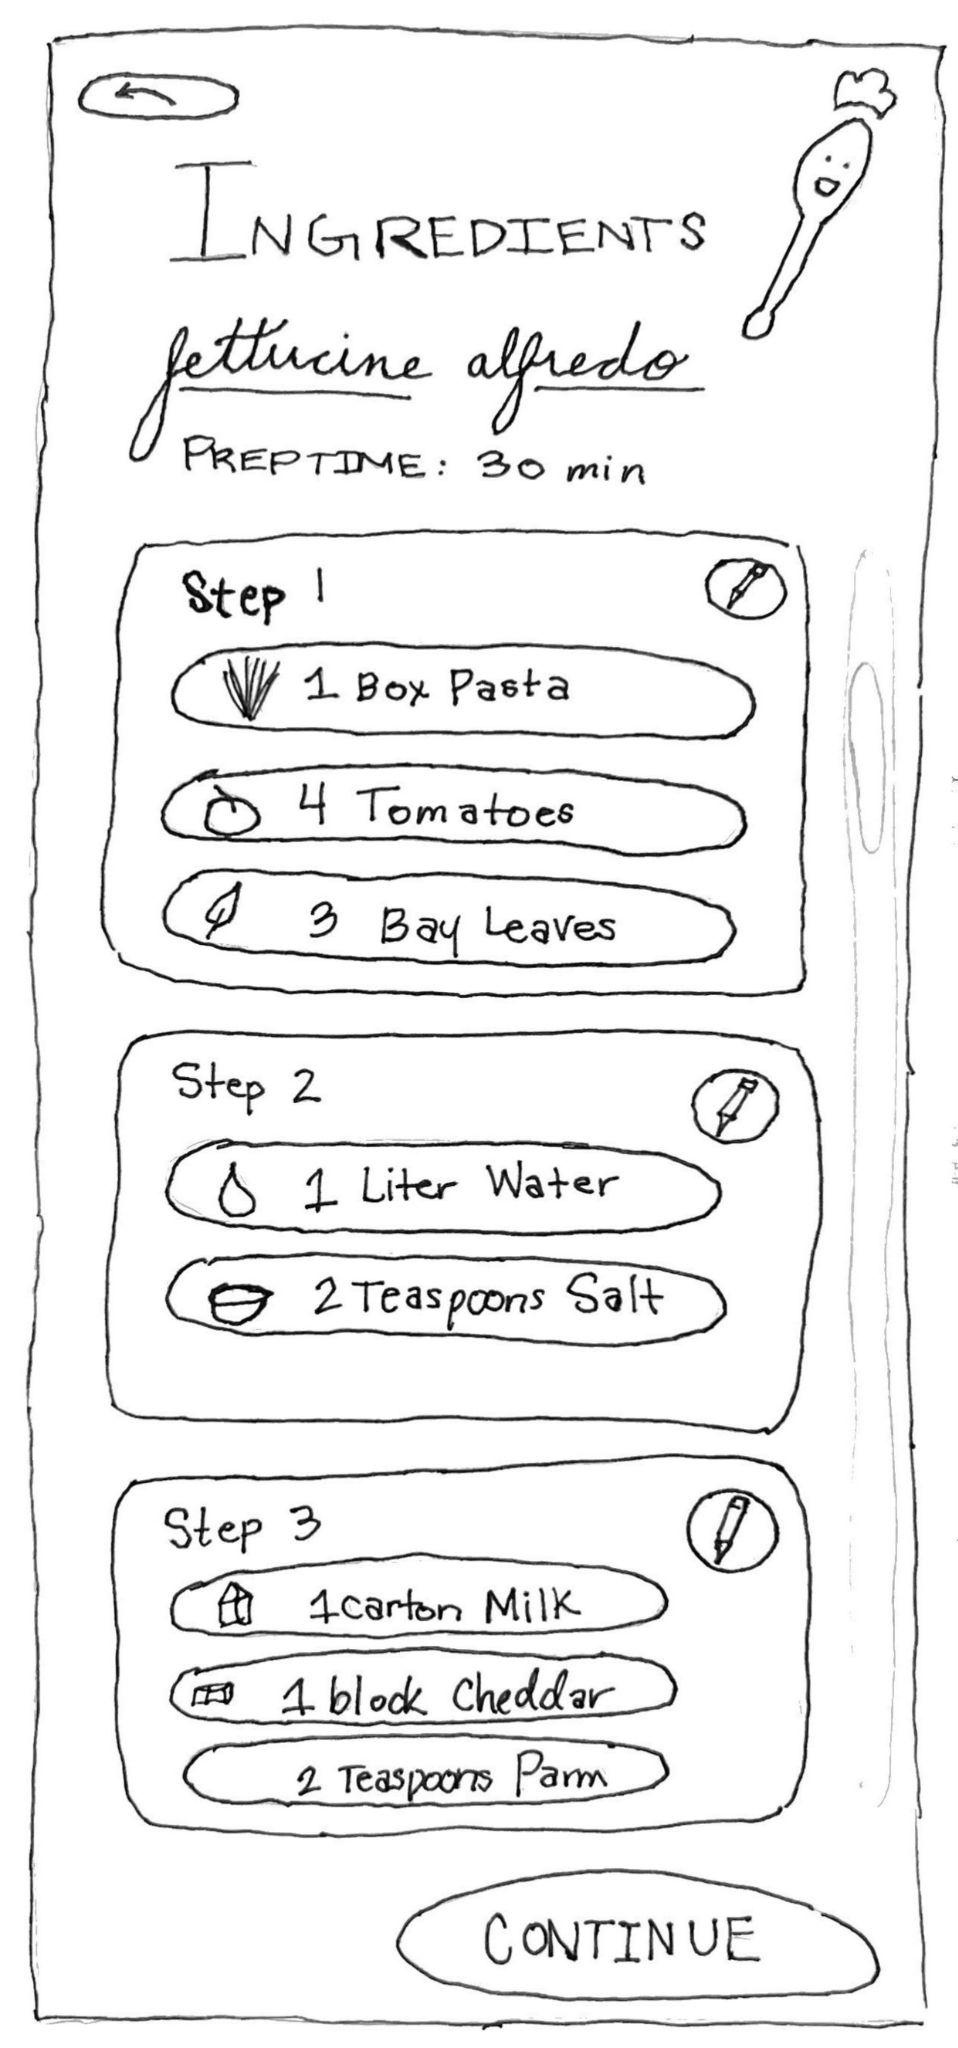 INGREDIENTS
fettucine alfredo
PREPTIME: 30 min
Step 1
1 Box Pasta
4 Tomatoes
3 Bay Leaves
Step 2
1 Liter Water
2 Teaspoons Salt
Step 3
1 carton Milk
1 block Cheddar
2 Teaspoons Parm
CONTINUE